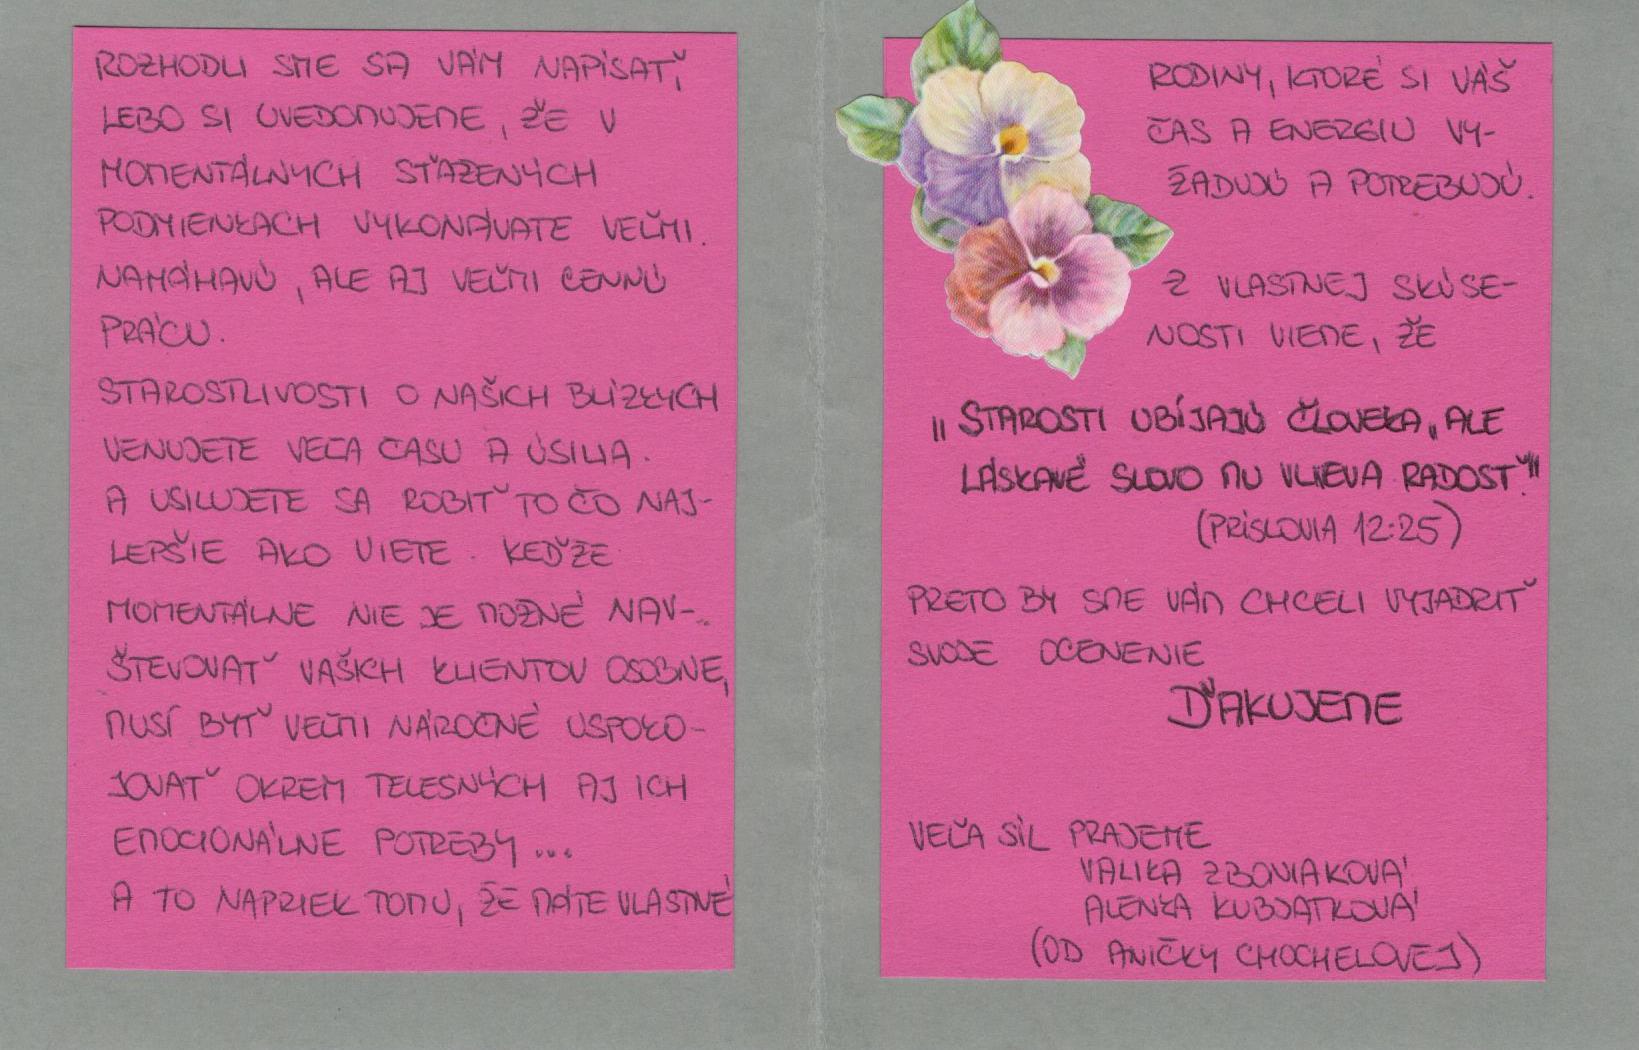 ROZHODLI SME SA VÁM NAPÍSAŤ,
LEBO SI UVEDOMUJEME, ŽE V
MOMENTÁLNYCH SŤAŽENÝCH
PODMIENKACH VYKONÁVATE VEĽMI.
NAMÁHAVÚ, ALE AJ VEĽMI CENNÚ
PRÁCU.
STAROSTLIVOSTI O NAŠICH BLÍZKYCH
VENUJETE VEĽA ČASU A ÚSILIA.
A USILUJETE SA ROBIŤ TO ČO NAJ-
LEPŠIE AKO VIETE. KEĎŽE
MOMENTÁLNE NIE JE MOŽNÉ NAV-
ŠTEVOVAŤ VAŠICH KLIENTOV OSOBNE,
MUSÍ BYŤ VEĽMI NÁROČNÉ USPOKO-
JOVAŤ OKREM TELESNÝCH AJ ICH
EMOCIONÁLNE POTREBY...
A TO NAPRIEK TOMU, ŽE MÁTE VLASTNÉ
RODINY, KTORÉ SI VÁŠ
ČAS A ENERGIU VY-
ŽADUJÚ A POTREBUJÚ.
Z VLASTNEJ SKÚSE-
NOSTI VIEME, ŽE
„STAROSTI UBÍJAJÚ ČLOVEKA, ALE
LÁSKAVÉ SLOVO MU VLIEVA RADOSŤ."
(PRÍSLOVIA 12:25)
PRETO BY SME VÁM CHCELI VYJADRIŤ
SVOJE OCENENIE
ĎAKUJEME
VEĽA SÍL PRAJEME
VALIKA ZBONIAKOVÁ
ALENKA KUBJATKOVÁ
(OD ANIČKY CHOCHELOVEJ)